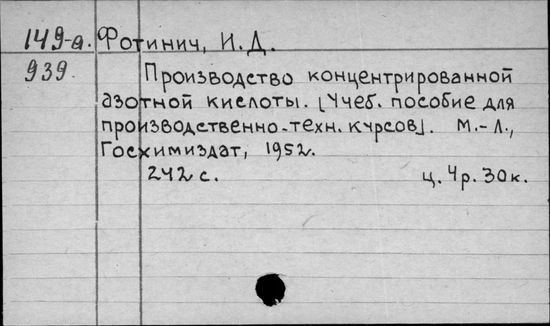 149-а. Фотинич, И.Д.
939. Производство концентрированной
азотной кислоты. [Учеб. пособие для
производственно-техн. курсов]. М.-Л.,
Госхимиздат, 1952.
242 с. ц. 4р. 30к.